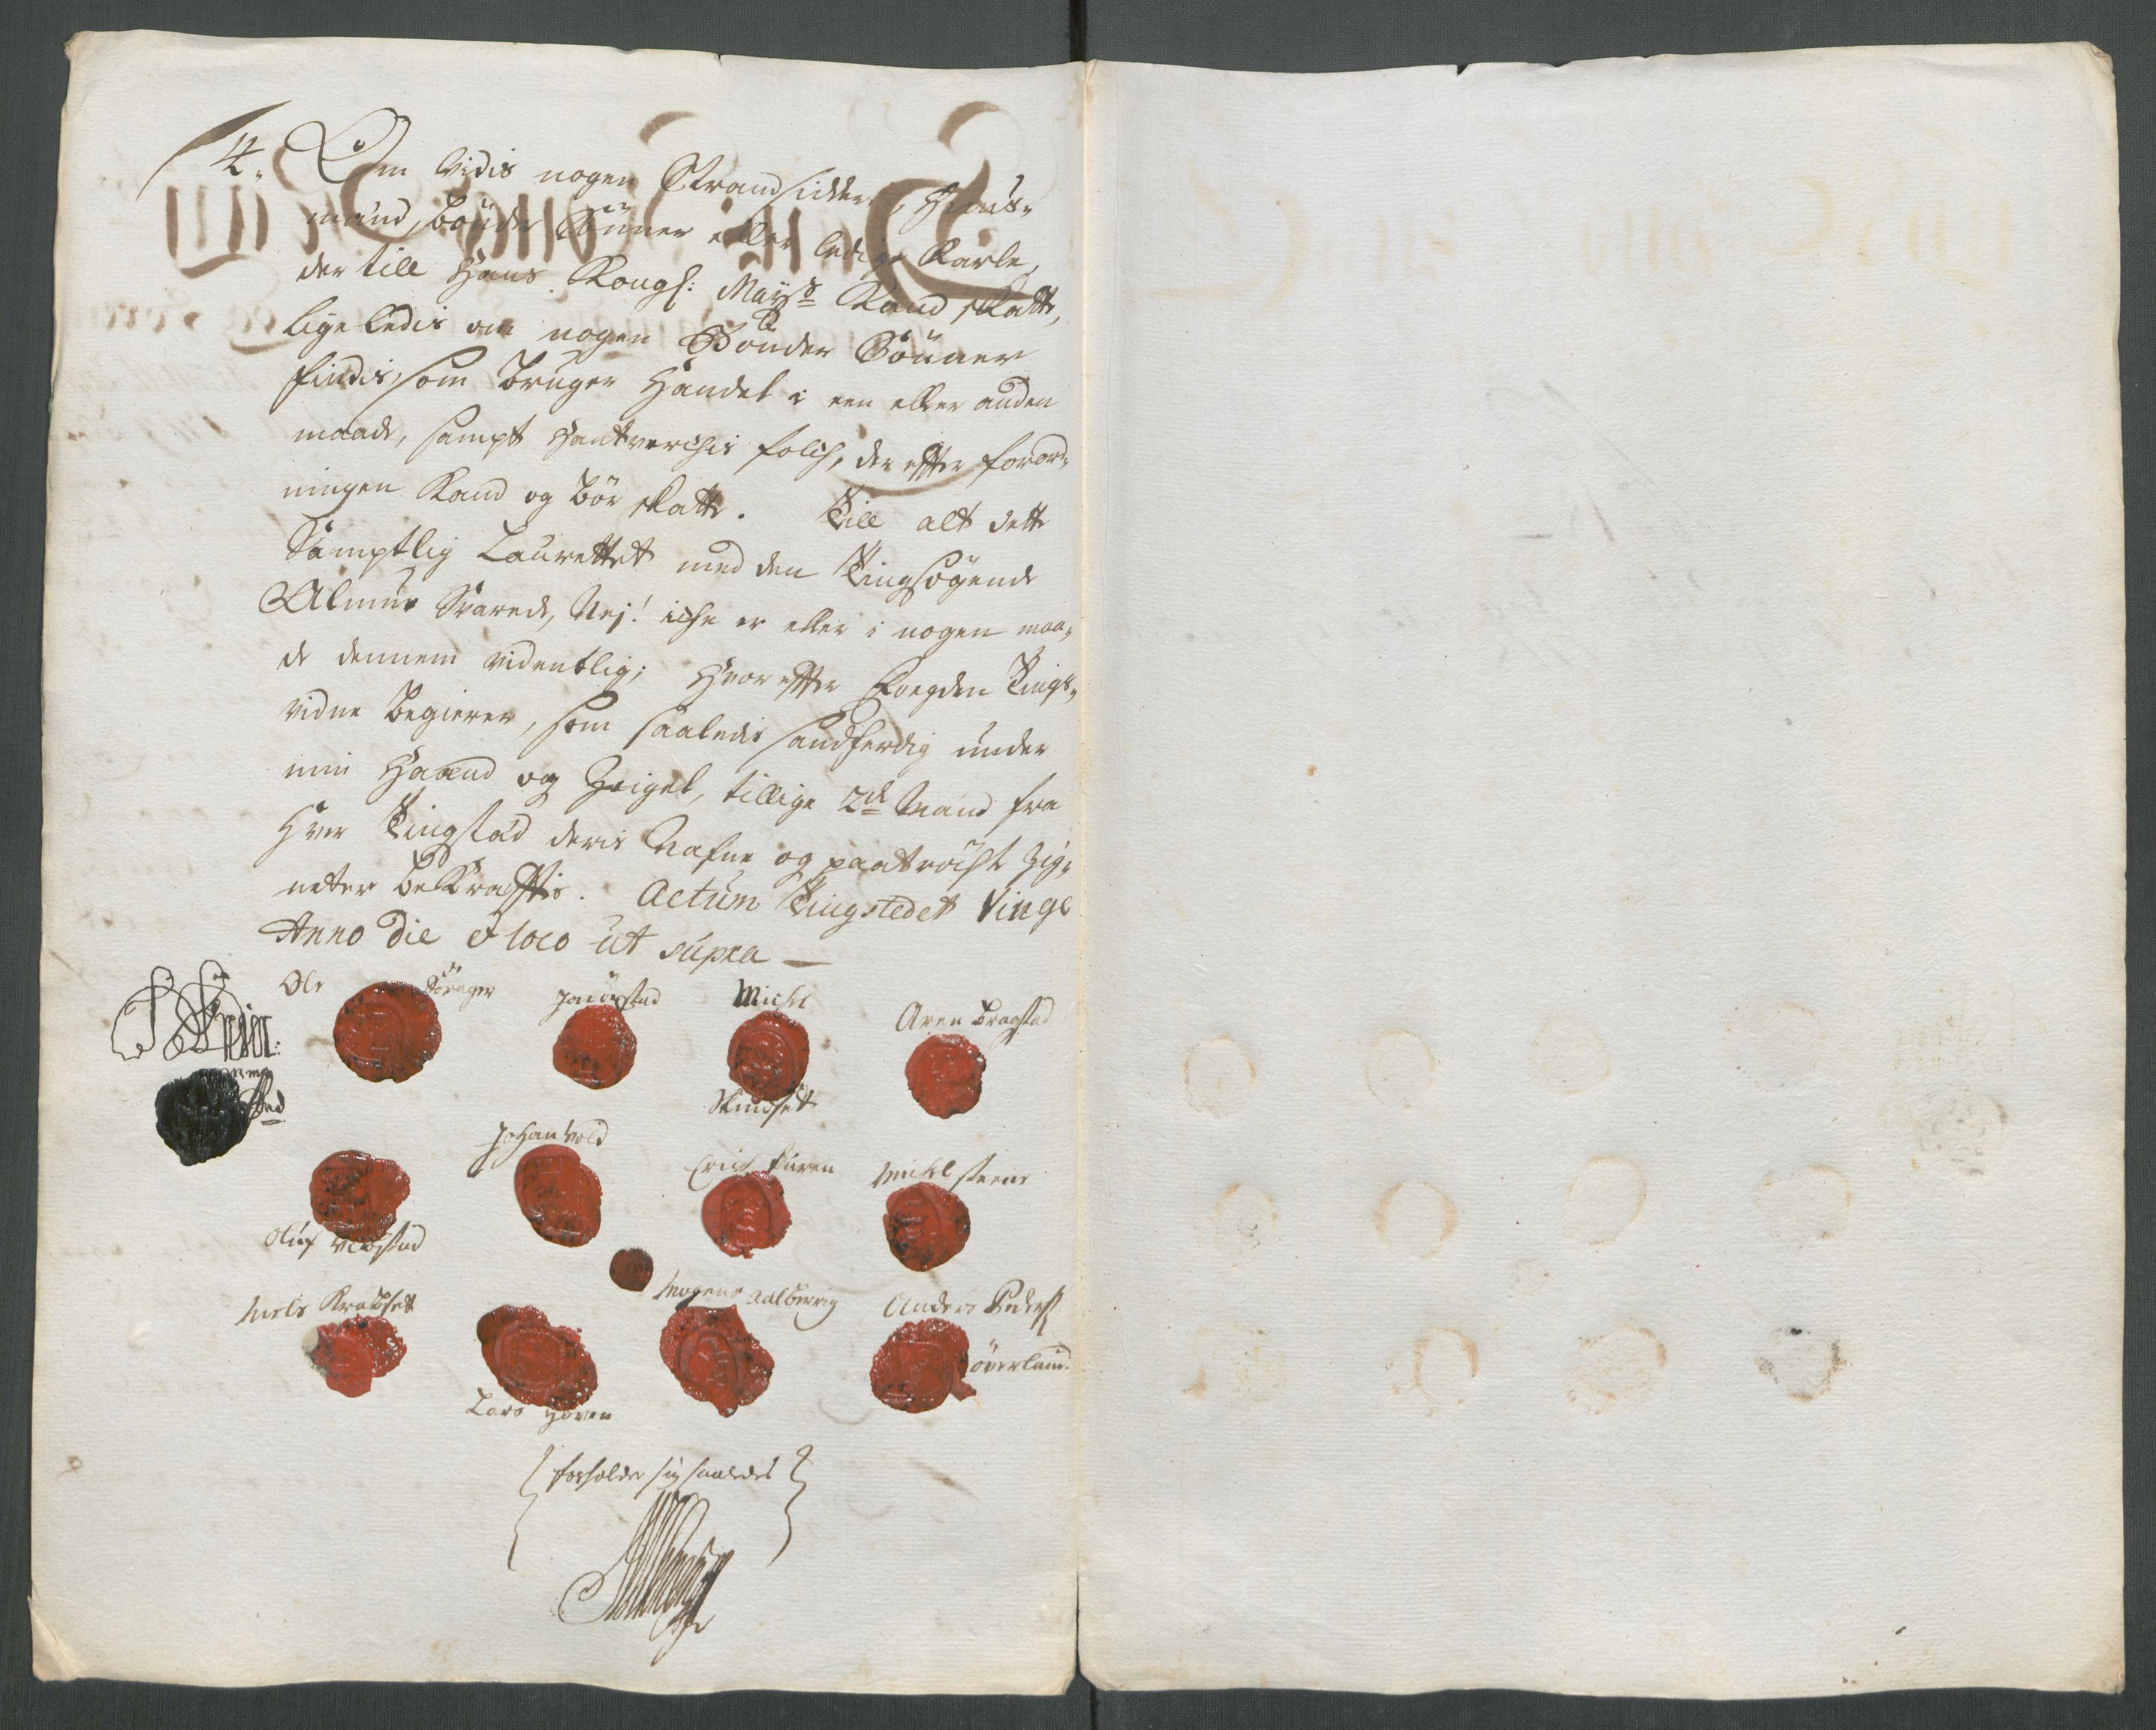 4. Om vidis nogen Strandsidder, Huus-
mænd, bönder Sönner eller ledige Karle,
der till Hans Kongl: Mayts Kand skatte,
ligeledis om nogen Bönder Sönner
findis, som bruger Handel i een eller anden
maade, sampt Handtverchis folch, der effter forord-
ningen Kand og bör skatte. Till alt dette
Samptlig Laurettet med den Tingsögende
Almue Svarede, Nej! iche er eller i nogen maa-
de dennem videntlig; Hvor effter Fogden Tings-
vidne begierer, som saaledis sandferdig under
min Haand og Zeigel, tillige 2de Mand fra
Hver Tingstad deris Nafne og paatröchte Zig-
neter bekrefftis. Actum Tingstedet Vinge
Anno die & loco ut supra
Ole
Jon östad
Michel
Aren Bragstad
Skindset
Johan Vold
Erich Furen
Michel steene
Oluf
Niels Krabset
Mogens Aalberrig
Anders Peders
överland
Lars Høven
forholder sig saaledes